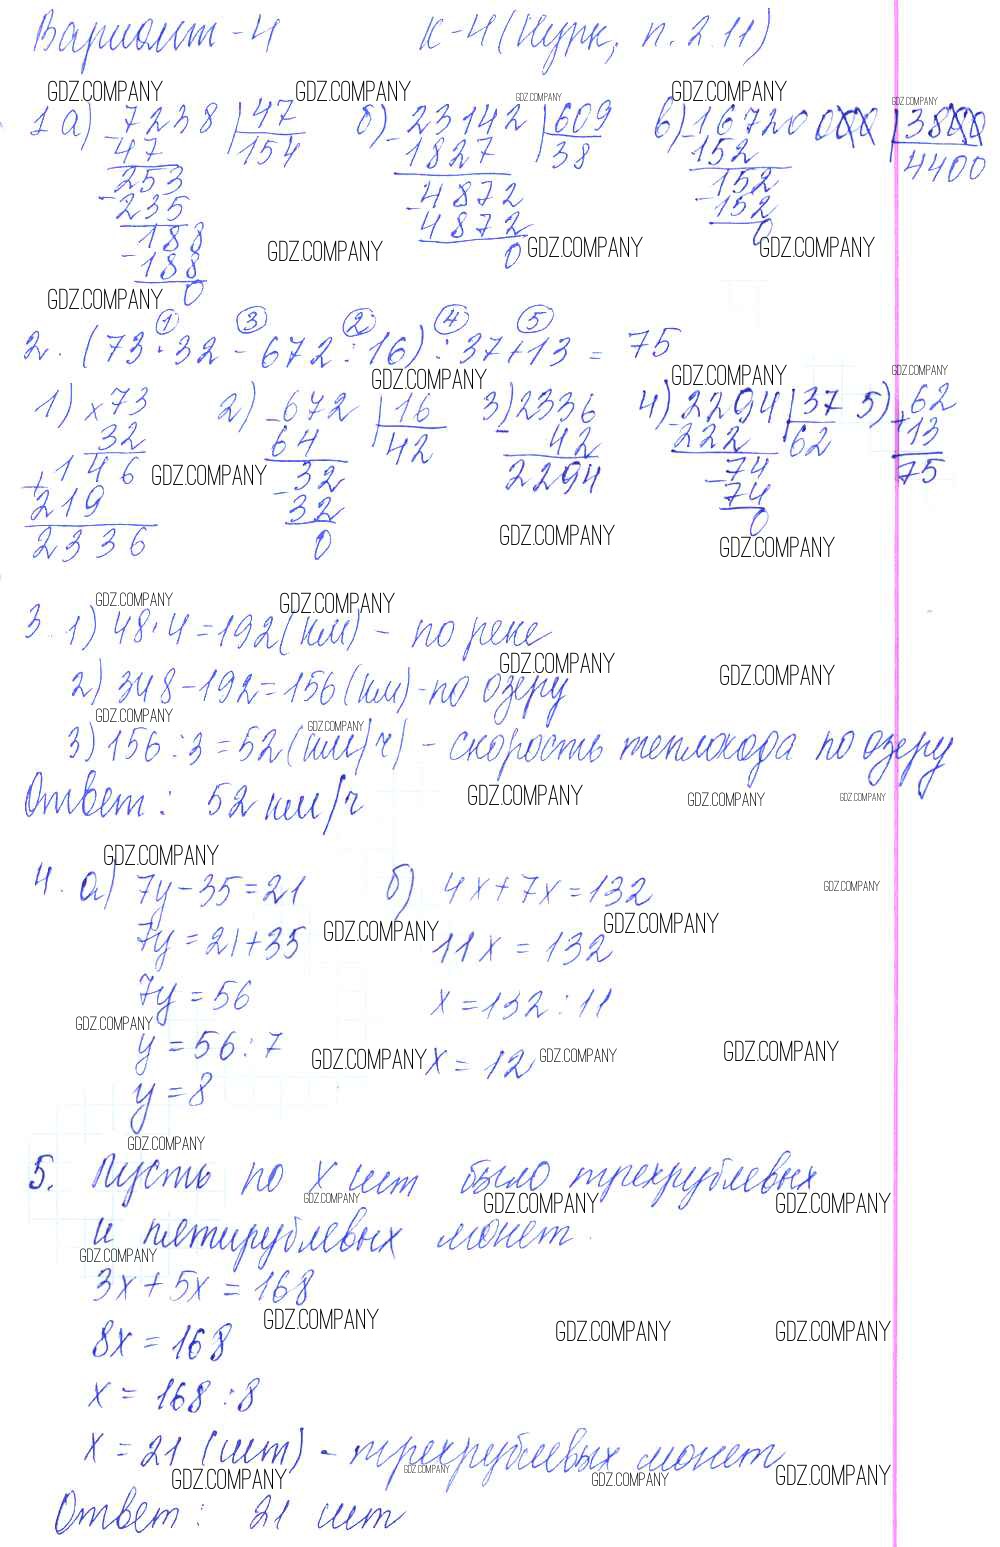 Вариант - 4 К-4 (Нурк, п. 2.11)
GDZ.COMPANY GDZ.COMPANY GDZ.COMPANY GDZ.COMPANY GDZ.COMPANY
1 а) 7238 | 47 б) 23142 | 609 в) 16720000 | 3800
- 47 154 - 1827 38 - 152 4400
253 4872 152
- 235 - 4872 - 152
188 0 0
GDZ.COMPANY GDZ.COMPANY GDZ.COMPANY
- 188
0
GDZ.COMPANY
① ③ ② ④ ⑤
2. (73 · 32 - 672 : 16) : 37 + 13 = 75
GDZ.COMPANY GDZ.COMPANY GDZ.COMPANY
1) × 73 2) - 672 | 16 3) - 2336 4) - 2294 | 37 5) + 62
32 64 42 42 222 62 13
+ 146 - 32 2294 - 74 75
219 32 74
2336 0 0
GDZ.COMPANY GDZ.COMPANY GDZ.COMPANY
GDZ.COMPANY GDZ.COMPANY
3. 1) 48 · 4 = 192 (км) - по реке
GDZ.COMPANY GDZ.COMPANY
2) 348 - 192 = 156 (км) - по озеру
GDZ.COMPANY GDZ.COMPANY
3) 156 : 3 = 52 (км/ч) - скорость теплохода по озеру
Ответ: 52 км/ч
GDZ.COMPANY GDZ.COMPANY GDZ.COMPANY
GDZ.COMPANY
4. а) 7y - 35 = 21 б) 4x + 7x = 132
GDZ.COMPANY
7y = 21 + 35 11x = 132
GDZ.COMPANY GDZ.COMPANY
7y = 56 x = 132 : 11
GDZ.COMPANY
y = 56 : 7 x = 12
GDZ.COMPANY GDZ.COMPANY GDZ.COMPANY
y = 8
GDZ.COMPANY
5. Пусть по x шт было трехрублевых
GDZ.COMPANY GDZ.COMPANY GDZ.COMPANY
и пятирублевых монет.
GDZ.COMPANY
3x + 5x = 168
GDZ.COMPANY GDZ.COMPANY GDZ.COMPANY
8x = 168
x = 168 : 8
x = 21 (шт) - трехрублевых монет
GDZ.COMPANY GDZ.COMPANY GDZ.COMPANY GDZ.COMPANY
Ответ: 21 шт